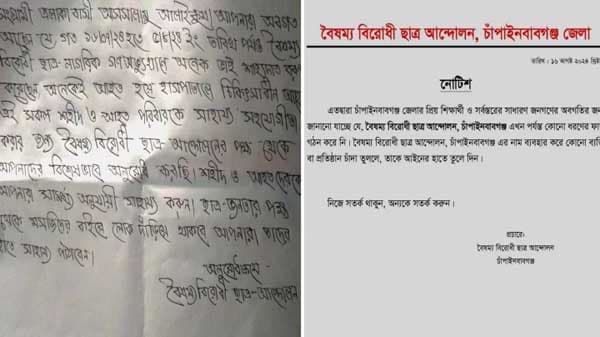 সংগ্রামী এলাকাবাসী আসসালামু আলাইকুম। আপনারা অবগত
আছেন যে গত
বিরোধী ছাত্র-নাগরিক গণঅভ্যুত্থানে অনেক ভাই শাহাদাত বরণ
করেছেন অনেকেই আহত হয়ে হাসপাতালে চিকিৎসাধীন আছেন
এই সকল শহীদ ও আহত পরিবারকে সাহায্য সহযোগীতা
করার জন্য বৈষম্য বিরোধী ছাত্র আন্দোলনের পক্ষ থেকে
আপনাদের বিশেষভাবে অনুরোধ করছি। শহীদ ও আহতদেরকে
আপনারা সামর্থ্য অনুযায়ী সাহায্য করুন। ছাত্র-জনতার পক্ষ
থেকে মসজিদের বাইরে লোক দাঁড়িয়ে থাকবে আপনারা তাদের
হাতে সাহায্য পাঠাবেন।
অনুরোধক্রমে
বৈষম্যবিরোধী ছাত্র-আন্দোলন
বৈষম্য বিরোধী ছাত্র আন্দোলন, চাঁপাইনবাবগঞ্জ জেলা
তারিখ: ১৬ আগষ্ট ২০২৪ খ্রিষ্ট
নোটিশ
এতদ্বারা চাঁপাইনবাবগঞ্জ জেলার প্রিয় শিক্ষার্থী ও সর্বস্তরের সাধারণ জনগণের অবগতির জন
জানানো যাচ্ছে যে, বৈষম্য বিরোধী ছাত্র আন্দোলন, চাঁপাইনবাবগঞ্জ এখন পর্যন্ত কোনো ধরণের ফা
গঠন করে নি। বৈষম্য বিরোধী ছাত্র আন্দোলন, চাঁপাইনবাবগঞ্জ এর নাম ব্যবহার করে কোনো ব্যক্তি
বা প্রতিষ্ঠান চাঁদা তুললে, তাকে আইনের হাতে তুলে দিন।
নিজে সতর্ক থাকুন, অন্যকে সতর্ক করুন।
প্রচারে:
বৈষম্য বিরোধী ছাত্র আন্দোলন
চাঁপাইনবাবগঞ্জ